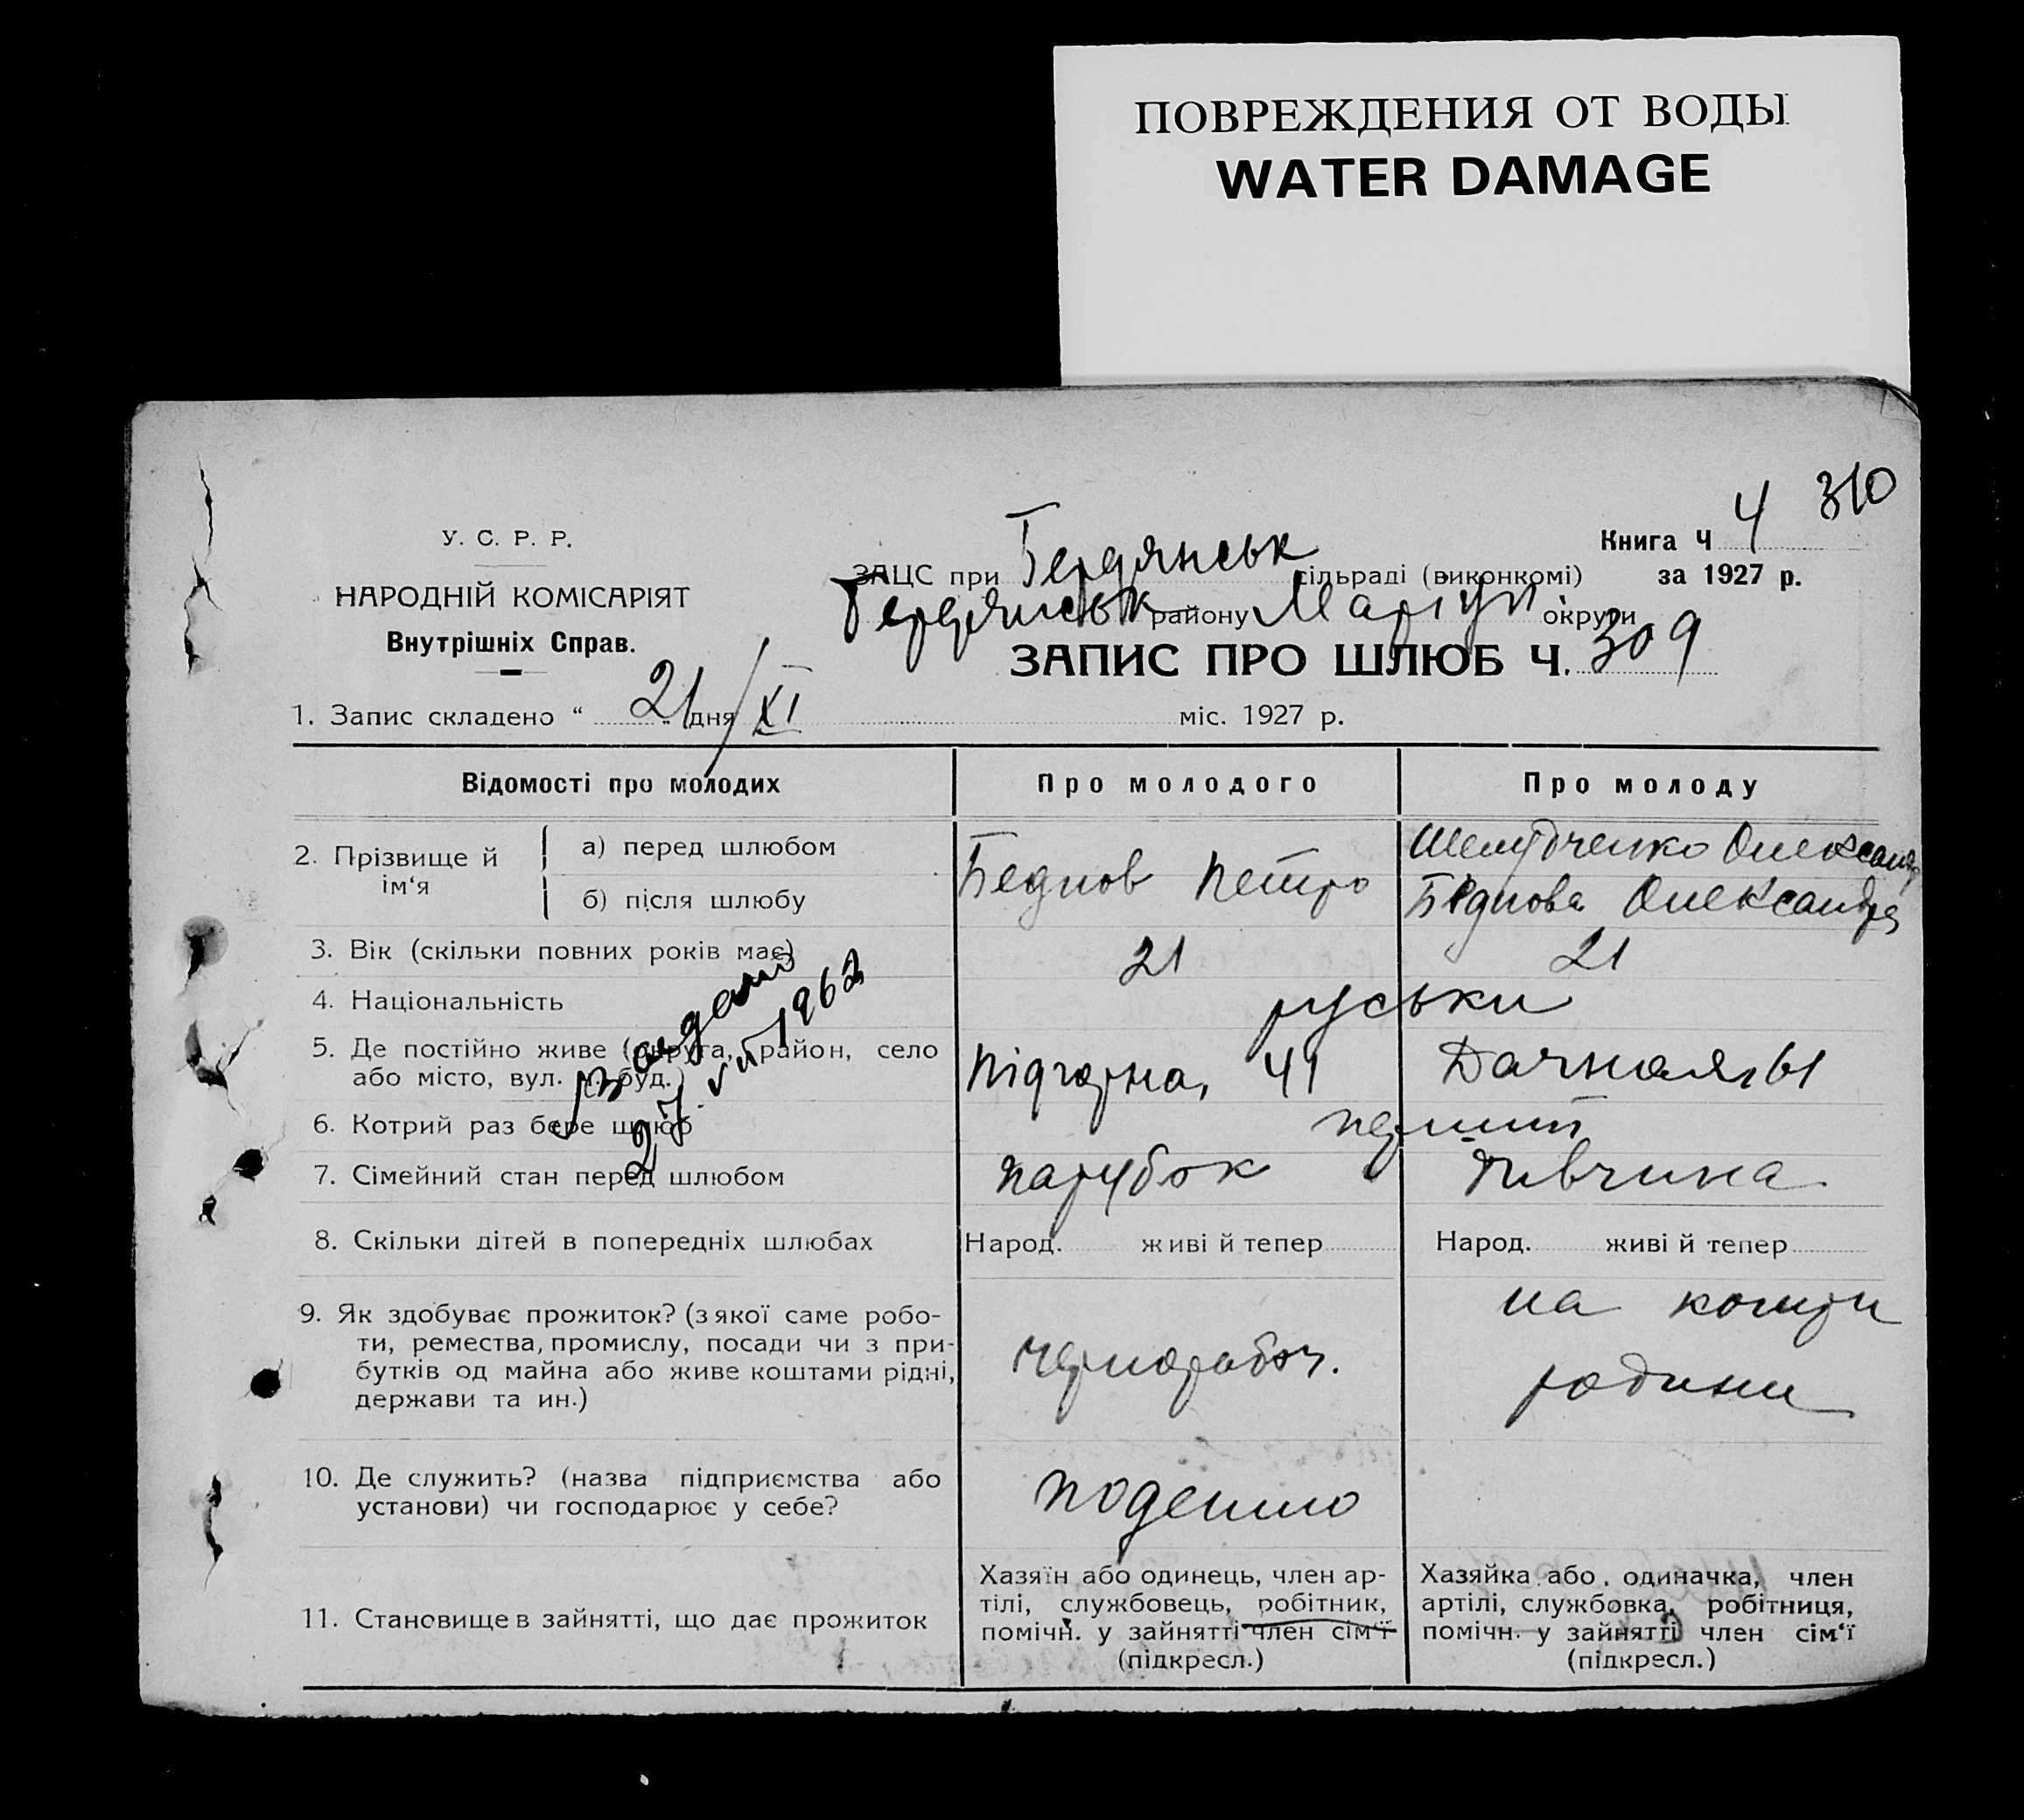 ПОВРЕЖДЕНИЯ ОТ ВОДЫ
WATER DAMAGE
310
У. С. Р. Р.
НАРОДНІЙ КОМІСАРІЯТ
Внутрішніх Справ.
Книга Ч 4
за 1927 р.
ЗАЦС при Бердянськ сільраді (виконкомі)
Бердянськ району Маріуп. округи
ЗАПИС ПРО ШЛЮБ Ч. 309
1. Запис складено “ 21 „ дня / XI міс. 1927 р.
Відомості про молодих Про молодого Про молоду
2. Прізвище й ім‘я
а) перед шлюбом
б) після шлюбу
Беднов Петро
Олександ
Бєднова Олександра
3. Вік (скільки повних років має) 21 21
4. Національність руськи
5. Де постійно живе (округа, район, село
або місто, вул. ч. буд.)
Підгорна, 41 Дачная, 61
6. Котрий раз бере шлюб перший
7. Сімейний стан перед шлюбом парубок дівчина
27. VII 1962
8. Скільки дітей в попередніх шлюбах Народ. живі й тепер Народ. живі й тепер
9. Як здобуває прожиток? (з якої саме робо-
ти, ремества, промислу, посади чи з при-
бутків од майна або живе коштами рідні,
держави та ин.)
чернорабоч.
на кошти
родини
10. Де служить? (назва підприємства або
установи) чи господарює у себе?
поденно
11. Становище в зайнятті, що дає прожиток
Хазяїн або одинець, член ар-
тілі, службовець, робітник,
помічн. у зайнятті член сім‘ї
(підкресл.)
Хазяйка або одиначка, член
артілі, службовка, робітниця,
помічн. у зайнятті член сім‘ї
(підкресл.)